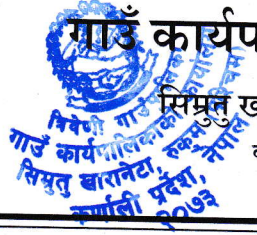 गाउँ कार्यप
सिम्रुतु ख
त्रिवेणी गाउँपालिका
गाउँ कार्यपालिकाको कार्यालय
सिम्रुतु खारानेटा रुकुम
कर्णाली प्रदेश, नेपाल
२०७३